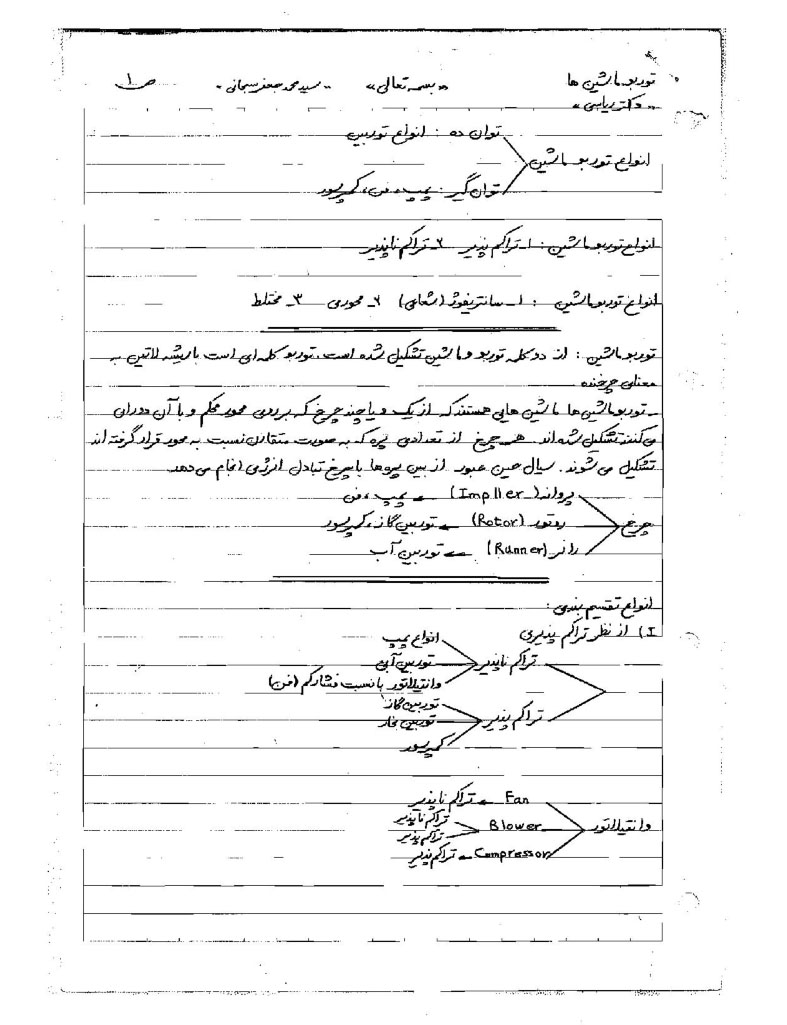 توربوماشین ها « بسمه تعالی » - سید محمد جعفر سبحانی - ص ۱
« دکتر ریاسی »
توان ده : انواع توربین
انواع توربو ماشین
توان گیر : پمپ، فن، کمپرسور
انواع توربوماشین : ۱- تراکم پذیر ۲- تراکم ناپذیر
انواع توربوماشین : ۱- سانتریفوژ (شعاعی) ۲- محوری ۳- مختلط
توربوماشین : از دو کلمه توربو و ماشین تشکیل شده است. توربو کلمه ای است با ریشه لاتین به
معنای چرخنده
- توربوماشین ها ماشین هایی هستند که از یک و یا چند چرخ که بر روی محور محکم و با آن دوران
می کنند تشکیل شده اند. هر چرخ از تعدادی پره که به صورت متقارن نسبت به محور قرار گرفته اند
تشکیل می شوند. سیال حین عبور از بین پره ها با چرخ تبادل انرژی انجام می دهد.
پروانه (Impller) ← پمپ، فن
چرخ روتور (Rotor) ← توربین گاز، کمپرسور
رانر (Runner) ← توربین آب
انواع تقسیم بندی :
I) از نظر تراکم پذیری
انواع پمپ
تراکم ناپذیر توربین آبی
وانتیلاتور با نسبت فشار کم (فن)
توربین گاز
تراکم پذیر توربین بخار
کمپرسور
Fan ← تراکم ناپذیر
وانتیلاتور Blower تراکم ناپذیر
تراکم پذیر
Compressor ← تراکم پذیر